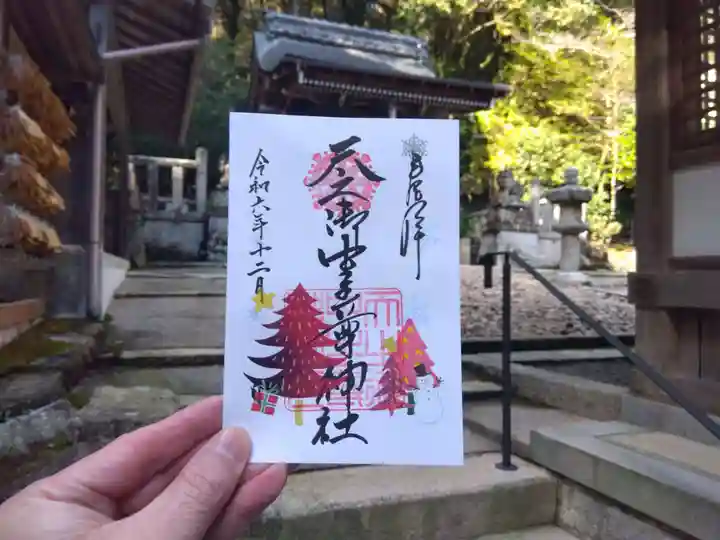 奉拝
天之御中主尊神社
令和六年十二月